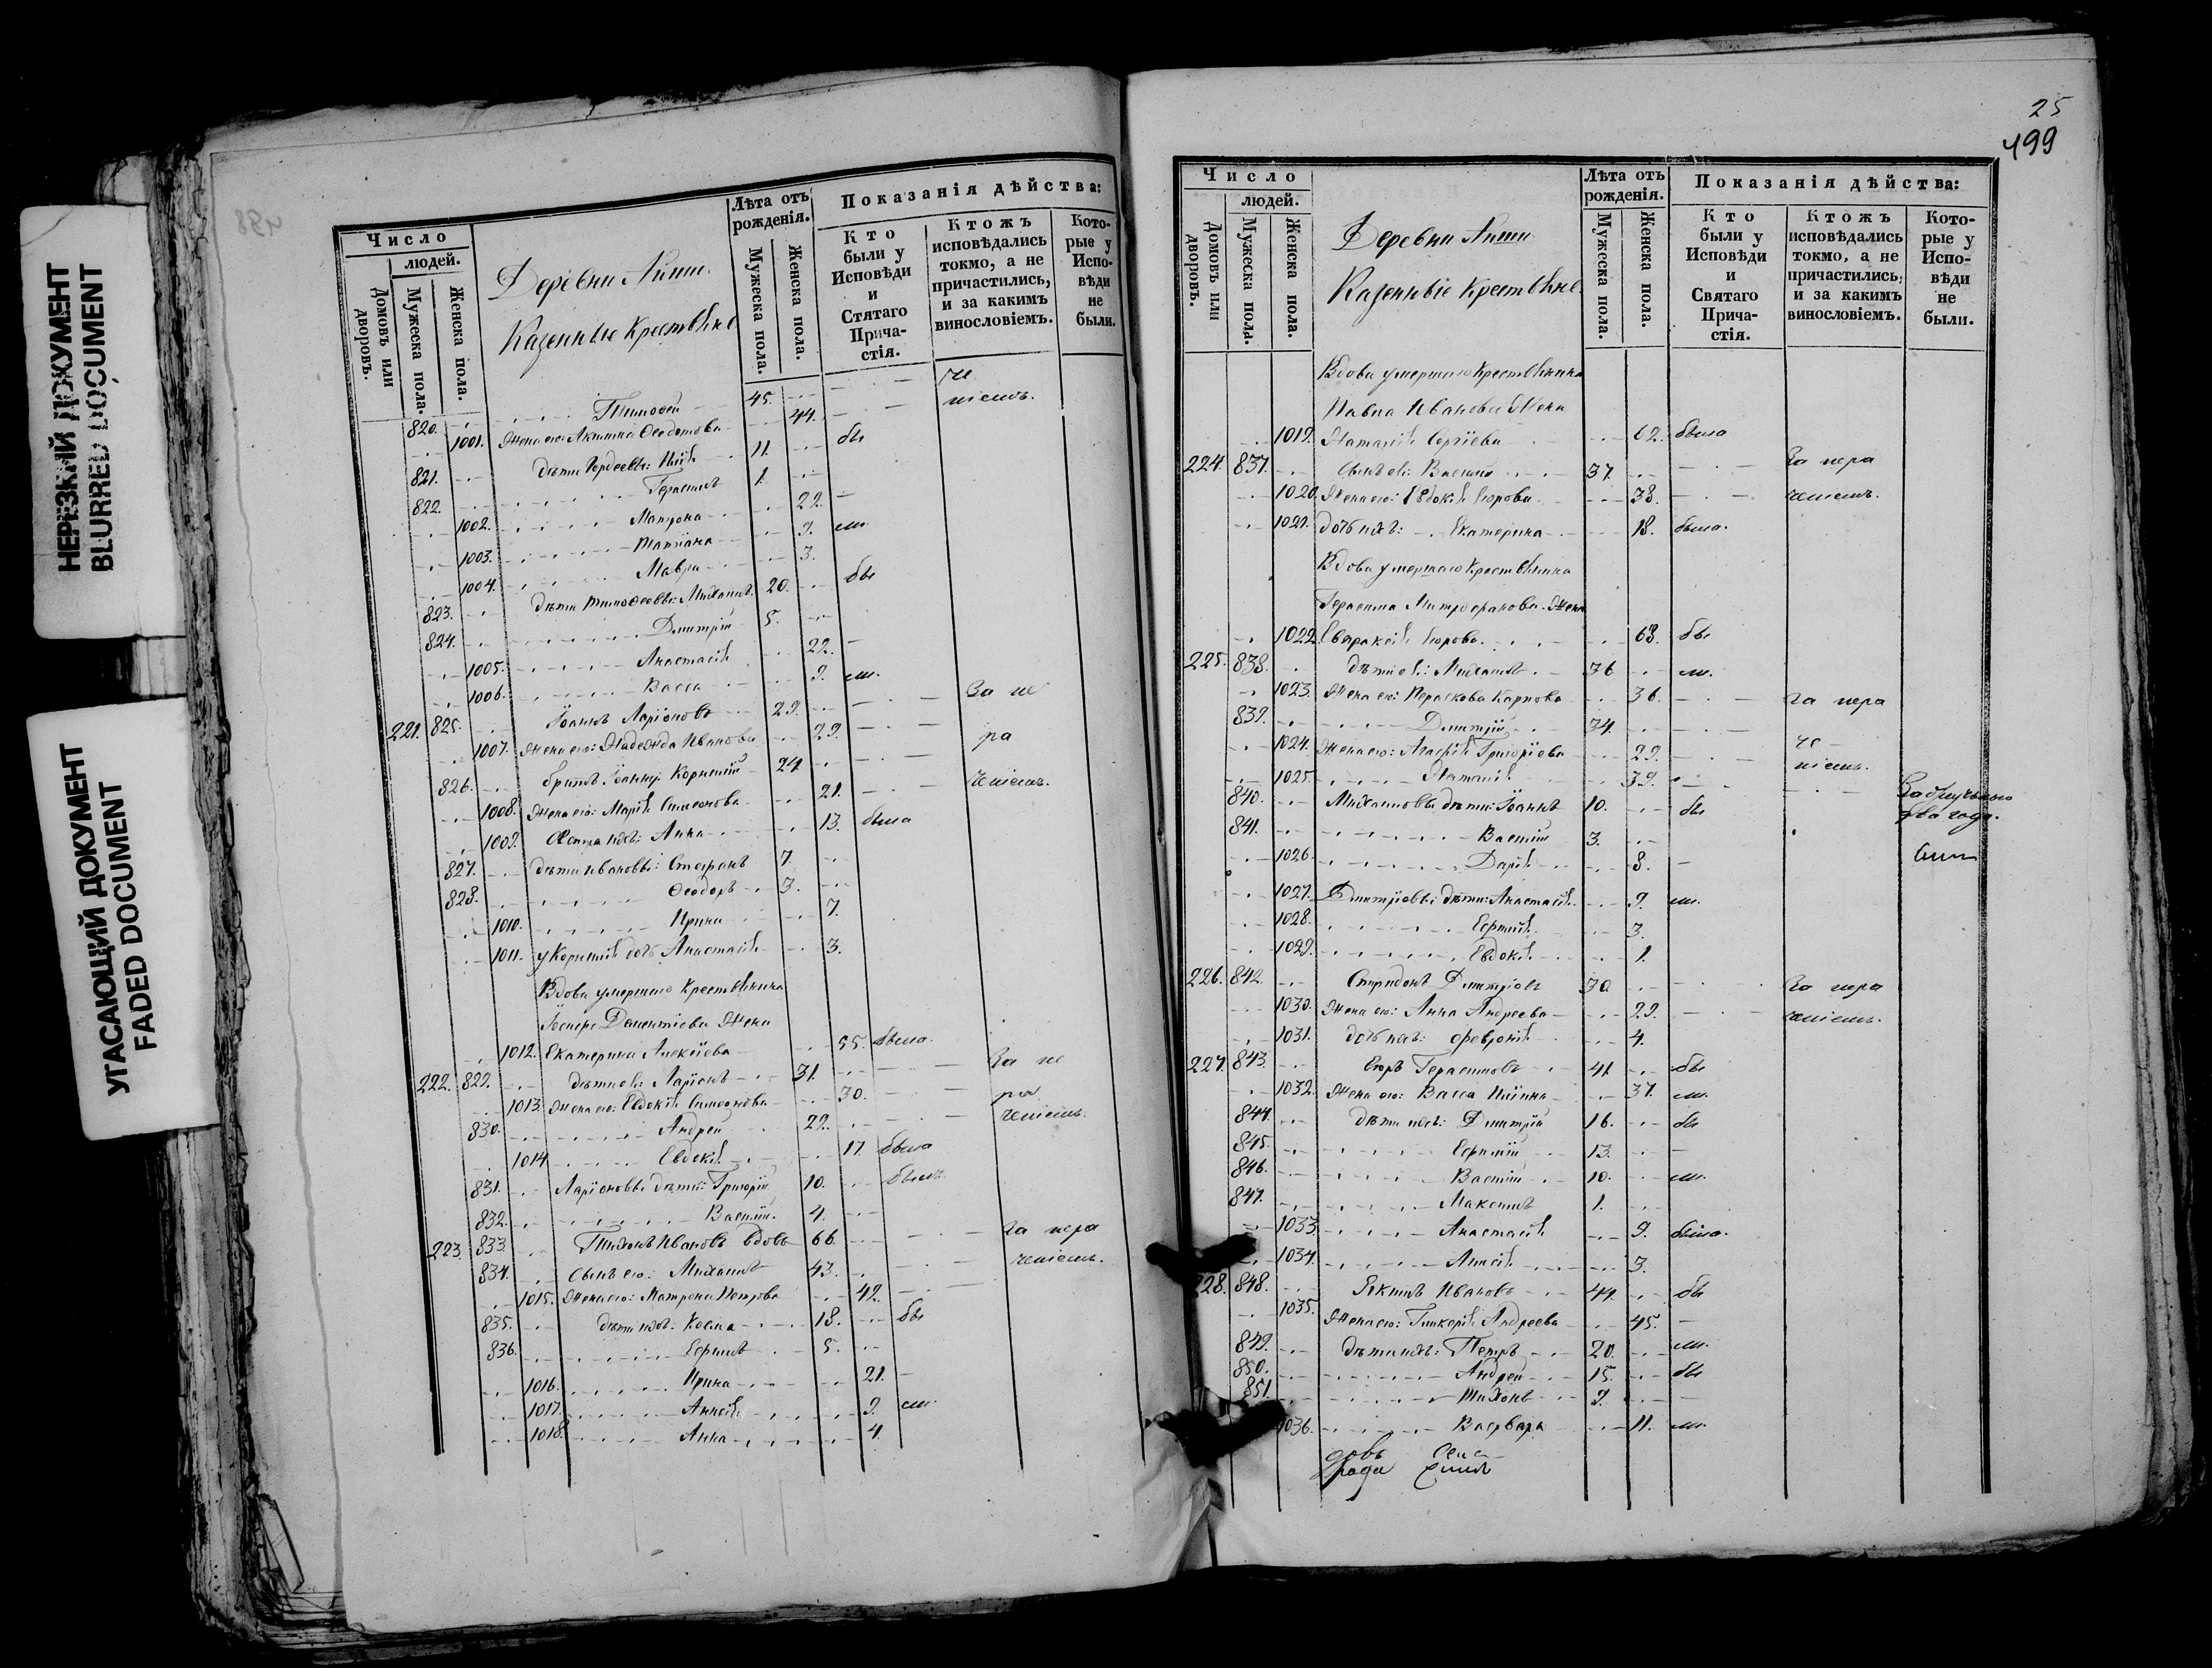 НЕРЕЗКИЙ ДОКУМЕНТ
BLURRED DOCUMENT
УГАСАЮЩИЙ ДОКУМЕНТ
FADED DOCUMENT
498
Число
людей.
Домовъ или дворовъ.
Мужеска пола.
Женска пола.
Деревни
Казенные Крестьяне
Лѣта отъ рожденія.
Мужеска пола.
Женска пола.
Показанія дѣйства:
Кто были у Исповѣди и Стятаго Прича-стія.
Ктожъ исповѣдались токмо, а не причастились, и за какимъ винословіемъ.
Кото-рые у Испо-вѣди не были.
820. Тимофей 45. че
1001. Жена его: Акилина Ѳеодотова 44. ніемъ.
821. Дѣти Гордеевы: 11. бы
822. Герасимъ 1.
1002. Матрона 22.
1003. Татіана 9. ли
1004. Мавра 3.
823. Дѣти Тимоѳеевы: Михаилъ 20. бы
824. Дмитрій 5.
1005. Анастасія 22.
1006. Васса 9. ли.
221. 825. Іоаннъ Ларіоновъ 29. За не
1007. Жена его: Надежда Иванова 29. ра
826. братъ Іоанну Корнилій 24
1008. Жена его: Марія Симеонова 21. ченіемъ.
1009. Сестра ихъ: Анна 13. была
827. дѣти Ивановы: Стефанъ 7.
828. Ѳеодоръ 3.
1010. Ирина 7.
1011. у Корнилія дочь Анастасія 3.
Вдова умершаго Крестьянина
Дементіева Жена
1012. Екатерина Алексіева 55. была.
222. 829. дѣти ея: Ларіонъ 31. За не
1013. Жена его: Евдокія Симеонова 30. ра
830. Андрей 22. ченіемъ.
1014 Евдокія 17 была
831. Ларіоновы дѣти: Григорій 10. былъ
832. Василій. 4.
223. 833. Тихонъ Ивановъ вдовъ 66. За нера
834. Сынъ его: Михаилъ 43. ченіемъ.
1015. Жена его: Матрона Петрова 42.
835. дѣти ихъ: Косма 18. бы
836. Ефимъ 5.
1016. Ирина 21.
1017. Анисія 9. ли.
1018. Анна 4
25
499
Число
людей.
Домовъ или дворовъ.
Мужеска пола.
Женска пола.
Деревни
Казенныіе Крестьяне
Лѣта отъ рожденія.
Мужеска пола.
Женска пола.
Показанія дѣйства:
Кто были у Исповѣди и Святаго Прича-стія.
Ктожъ исповѣдались токмо, а не причастились, и за какимъ винословіемъ.
Кото-рые у Испо-вѣди не были.
Вдова умершаго Крестьянина
Павла Иванова Жена
1019. Наталія Сергіева 62. была
224. 837. Сынъ ея: Василій 37. За нера
1020. Жена его: Евдокія Егорова 38. ченіемъ.
1021. дочь ихъ: Екатерина 18. была.
Вдова умершаго Крестьянина
Герасима Митрофанова Жена
1022. Евпраксія Егорова. 63. бы
225. 838. дѣти ея: Михаилъ 36 ли.
1023. Жена его: Параскева Карпова 36. За нера
839. Дмитрій 34.
1024. Жена его: Агафія Григоріева 29. че
1025. Наталія 39. ніемъ.
840. Михаиловы дѣти: Іоаннъ 10. бы два года.
841. Василій 3.
1026. Дарія 8.
1027. Дмитріевы дѣти: Анастасія 9. ли.
1028. Ефимія 3.
1029. Евдокія 1.
226. 842. Спиридонъ Дмитріевъ 30 За нера
1030. Жена его: Анна Андреева 29. ченіемъ.
1031. дочь ихъ: Февронія 4.
227. 843. Егоръ Герасимовъ 41. бы
1032. Жена его: Васса 37. ли.
844. дѣти ихъ: Дмитрій 16. бы
845. Ефимій 13.
846. Василій 10. ли.
847. Максимъ 1.
1033. Анастасія 9. была.
1034. Анисія 3.
228. 848. Іакимъ Ивановъ 44. бы
1035. Жена его: Гликерія Андреева 45.
849. дѣти ихъ: Петръ 20. ли.
850. Андрей 15. бы
851. Тихонъ 9.
1036. Варвара 11. ли.